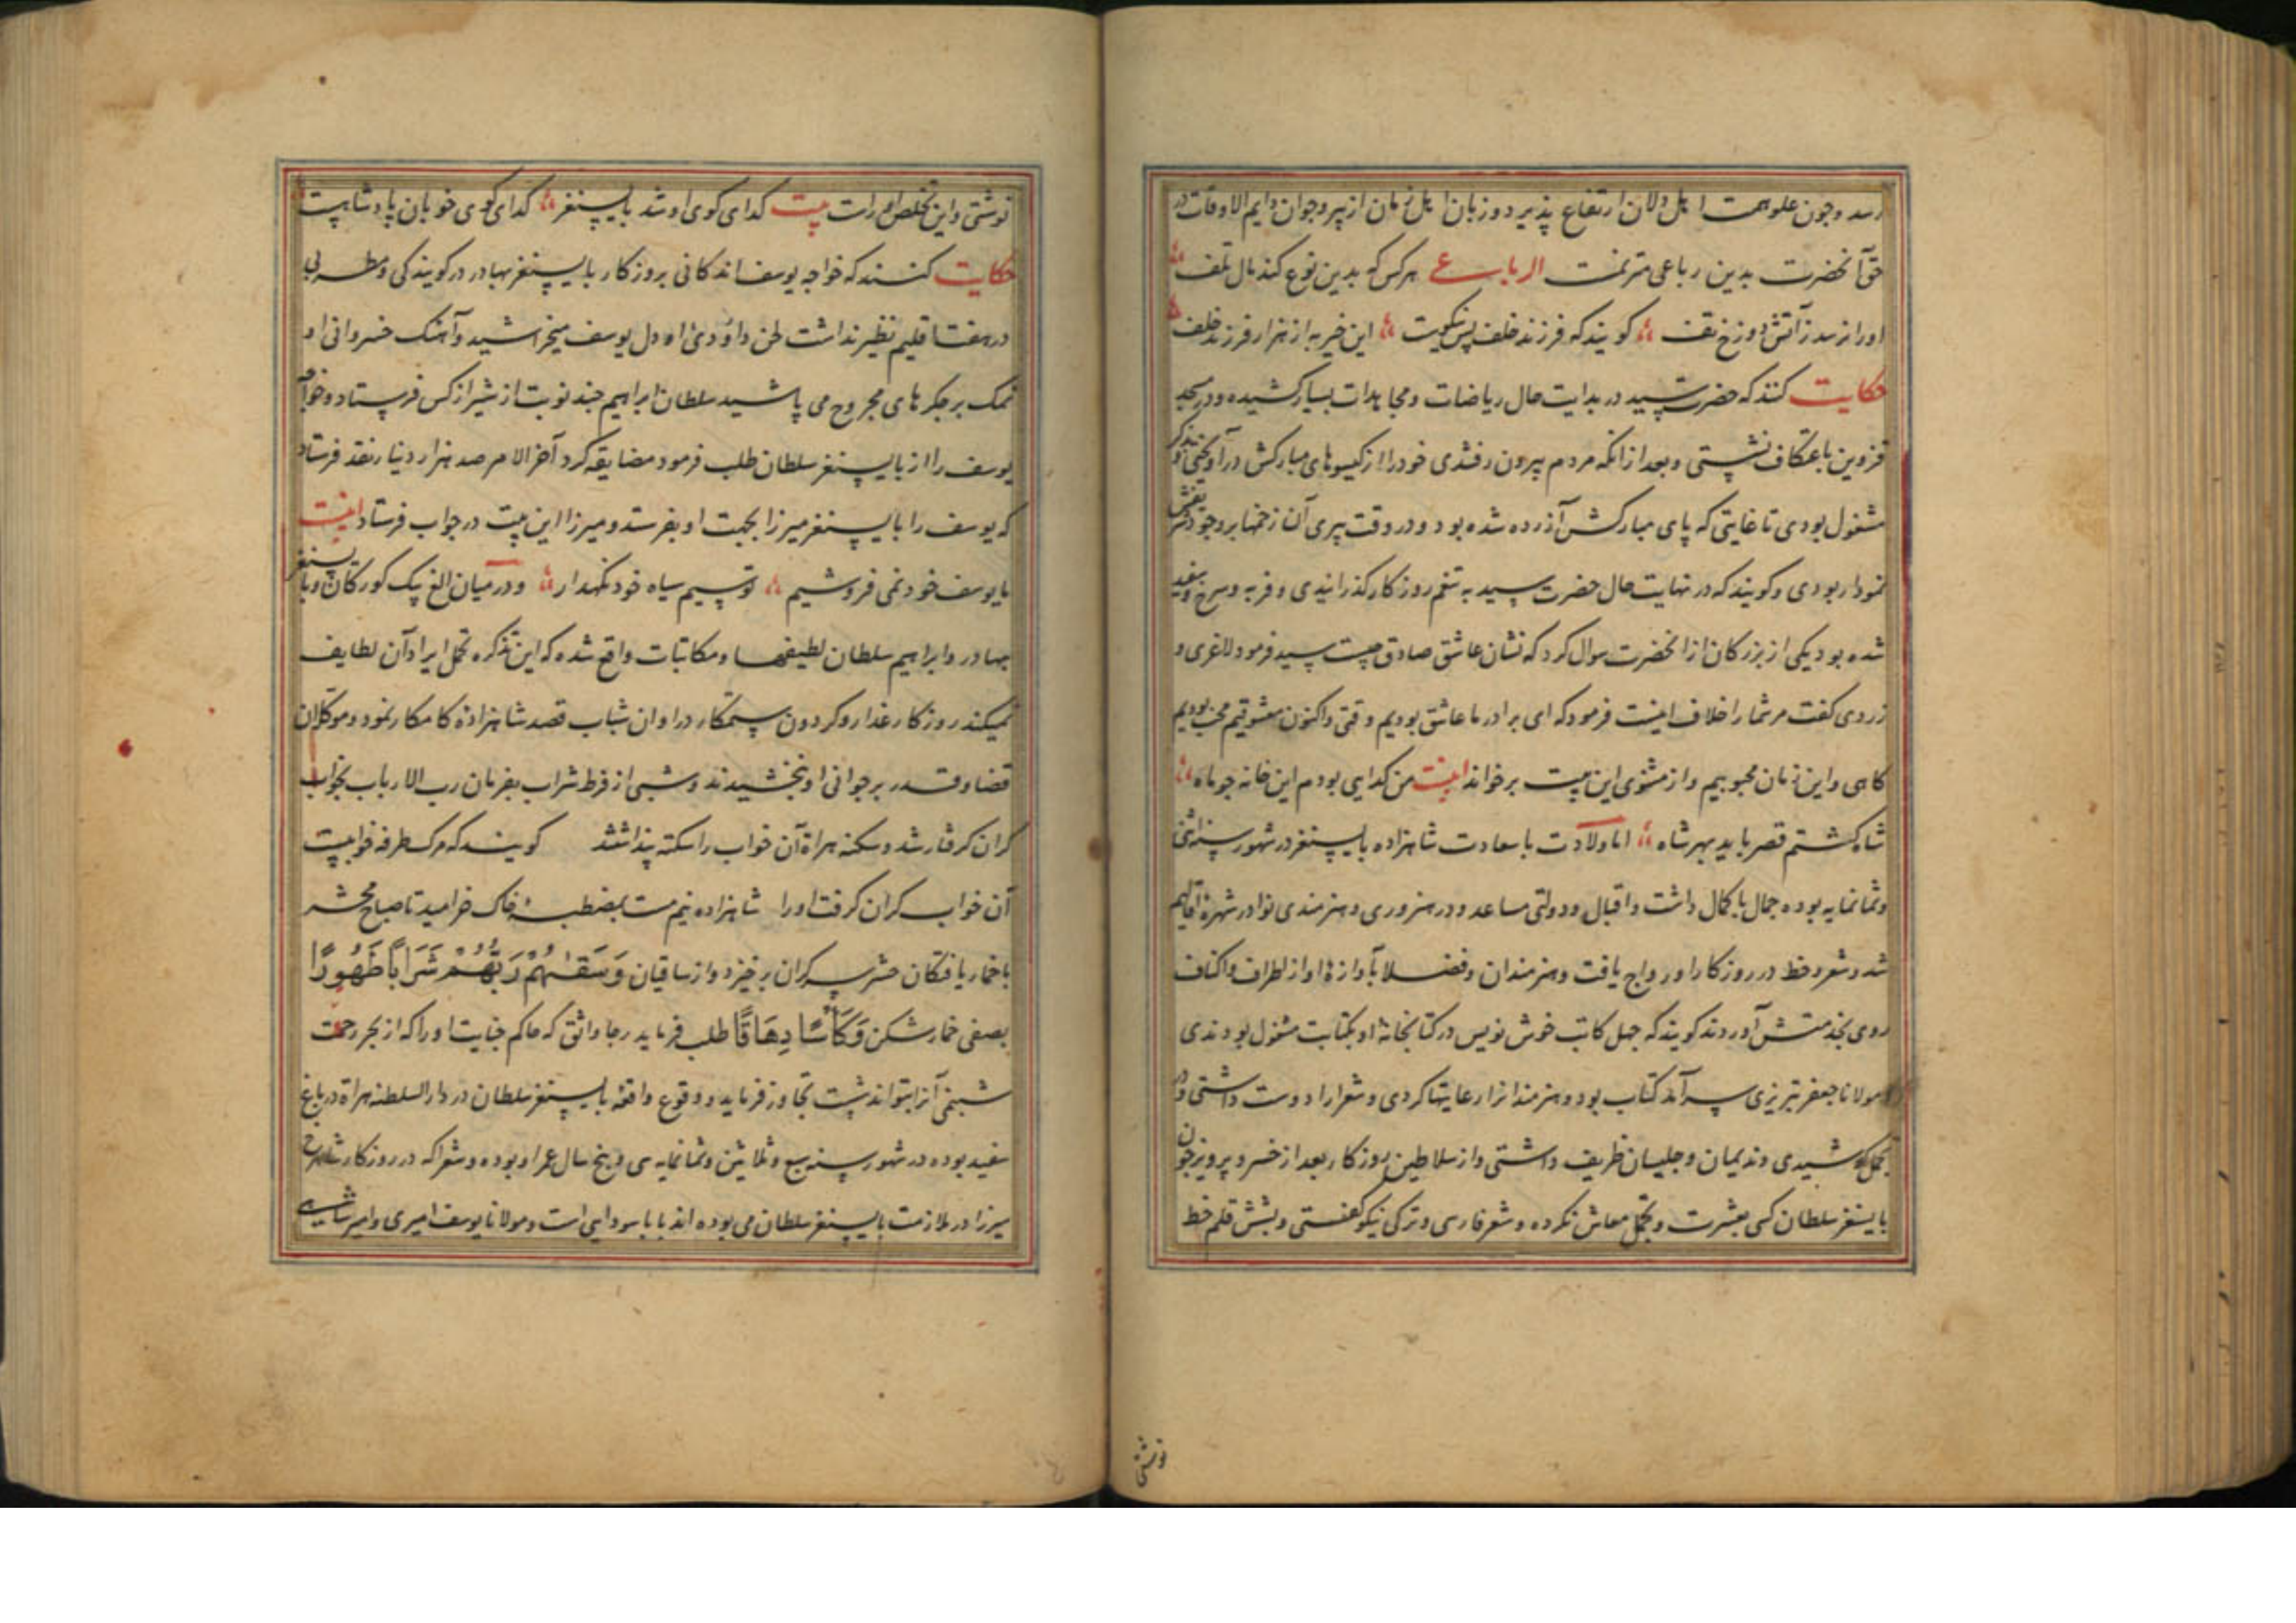 رسد وچون علو همت اهل دلان ارتفاع پذیرد و زبان اهل زمان از پیر وجوان دایم الاوقات در
حق آنحضرت بدین رباعی مترنمست الرباعی هر کس که بدین نوع کند مال تلف
او را نرسد ز آتش دوزخ تف کویند که فرزند خلف پس نیکوست این خیر به از هزار فرزند خلف
حکایت کنند که حضرت سید در بدایت حال ریاضات ومجاهدات بسیار کشیده ودر مسجد
قزوین باعتکاف نشستی وبعد از انکه مردم بیرون رفتندی خود را از کیسوهای مبارکش در آویختی وبذکر
مشغول بودی تا غایتی که پای مبارکش آزرده شده بود ودر وقت پیری آن زخمها بر وجود
نمودار بودی وکویند که در نهایت حال حضرت سید به تنعم روزکار کذرانیدی وفربه وسرخ وسفید
شده بود یکی از بزرکان از انحضرت سوال کرد که نشان عاشق صادق چیست سید فرمود لاغری و
زردی کفت مر شما را خلاف اینست فرمود که ای برادر ما عاشق بودیم وقتی واکنون معشوقیم محب بودیم
کاهی واین زمان محبوبیم واز مثنوی این بیت برخواند ابیت من کدایی بودم این خانه چو ماه
شاه کشتم قصر باید بهر شاه اما ولادت با سعادت شاهزاده بایسنغر در شهور سنه اثنی
وثمانمایه بوده جمال با کمال داشت واقبال ودولتی مساعد ودر هنروری وهنرمندی نوادر شهره اقالیم
شد وشعر وخط در روزکار او رواج یافت وهنرمندان وفضلا بآوازه او از اطراف واکناف
روی بخدمتش آوردند کویند که چهل کاتب خوش نویس در کتابخانه او بکتابت مشغول بودندی
ومولانا جعفر تبریزی سرآمد کتاب بود وهنرمندانرا رعایتها کردی وشعرا را دوست داشتی ودر
تجمل کوشیدی وندیمان وجلیسان ظریف داشتی واز سلاطین روزکار بعد از خسرو پرویز چون
بایسنغر سلطان کسی بعشرت وتجمل معاش نکرده وشعر فارسی وترکی نیکو کفتی وبشش قلم خط
نوشتی
نوشتی واین تخلص او راست بیت کدای کوی او شد بایسنغر کدای کوی خوبان پادشاهیست
حکایت کنند که خواجه یوسف اندکانی بروزکار بایسنغر بهادر در کویندکی ومطربی
در هفت اقلیم نظیر نداشت لحن داودی او دل یوسف میخراشید وآهنک خسروانی او
نمک بر جکرهای مجروح می پاشید سلطان ابراهیم چند نوبت از شیراز کس فرستاد وخواجه
یوسف را از بایسنغر سلطان طلب فرمود مضایقه کرد آخر الامر صد هزار دینار نقد فرستاد
که یوسف را بایسنغر میرزا بجهت او بفرستد ومیرزا این بیت در جواب فرستاد ابیت
ما یوسف خود نمی فروشیم تو سیم سیاه خود نکهدار ودر میان الغ بیک کورکان وبایسنغر
بهادر وابراهیم سلطان لطیفها ومکاتبات واقع شده که این تذکره تحمل ایراد آن لطایف
نمیکند روزکار غدار وکردون ستمکار در اوان شباب قصد شاهزاده کامکار نمود وموکلان
قضا وقدر بر جوانی او نبخشیدند وشبی از فرط شراب بفرمان رب الارباب بخواب
کران کرفتار شد وسکنه هراة آن خواب را سکته پنداشتند کویند که مرک طرفه خوابیست
آن خواب کران کرفت او را شاهزاده نیم مست بمضطبه خاک خرامید تا صباح محشر
با خمار یافتکان حشر سر کران برخیزد واز ساقیان وَسَقٰیهُمْ رَبُّهُمْ شَرَابًا طَهُورًا
بصفی خمار شکن وَکَأْسًا دِهَاقًا طلب فرماید رجا واثق که حاکم جنایت او را که از بحر رحمت
شبنمی آنرا تواند شست تجاوز فرماید ووقوع واقعه بایسنغر سلطان در دار السلطنه هراة در باغ
سفید بوده در شهور سنه سبع وثلاثین وثمانمایه سی وپنج سال عمر او بوده وشعرا که در روزکار شاهرخ
میرزا در ملازمت بایسنغر سلطان می بوده اند بابا سودایی است ومولانا یوسف امیری وامیر شاهی